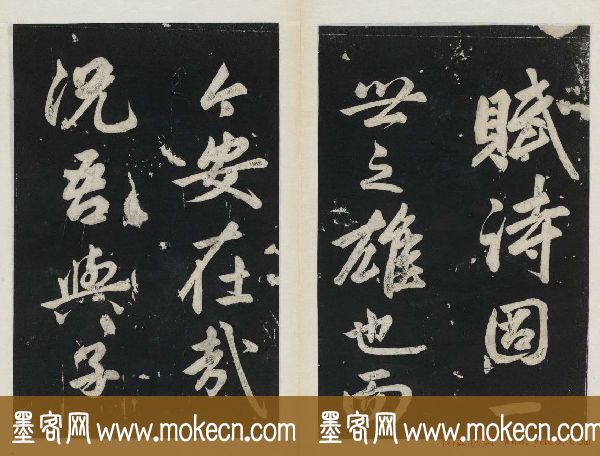 賦诗固一
世之雄也而
今安在哉
況吾與子
墨客网 www.mokecn.com
墨客网 www.mokecn.com